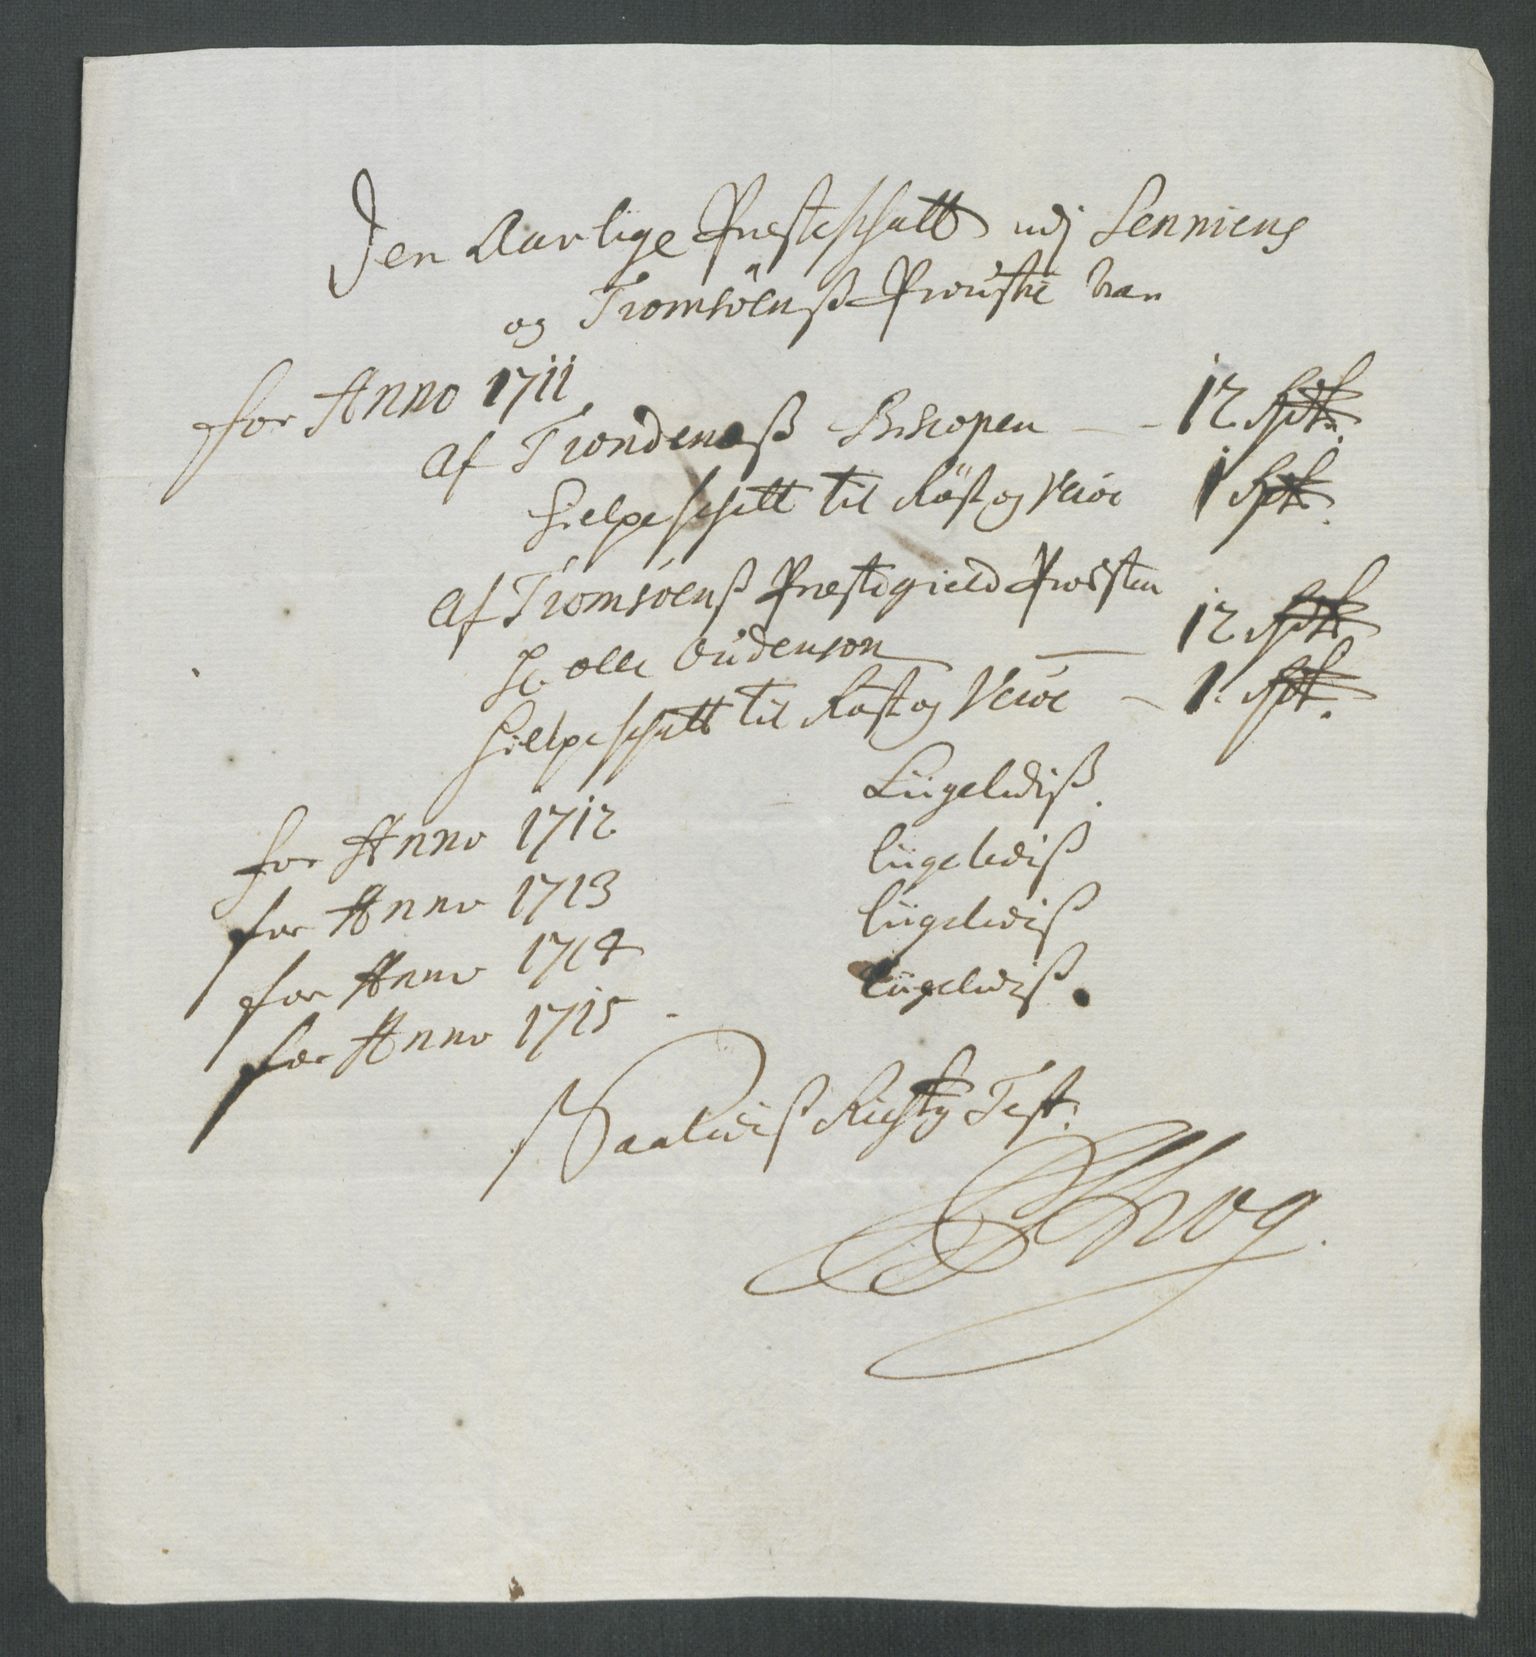 Den Aarlige Presteschatt udj Senniens
og Tromsöens Prouste
for Anno 1711
Af Trondenæs Biscopen — 12
Hielpeschatt til Röst og Weröe 1
Af Tromsöens Prestegield Prousten
Hr. Olle Oudenson — 12
Hielpeschatt til Röst og Weröe — 1
for Anno 1712 Liigelediß
for Anno 1713 liigelediß
for Anno 1714 liigelediß
for Anno 1715 liigelediß.
Saaledeß Rigtig Test: